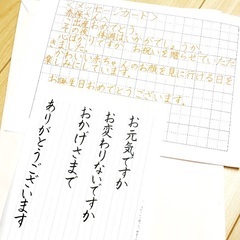 <メッセージカード>
体調はいかがでしょうか
お祝いを贈らせていただ
きました。
赤ちゃんのお顔を見に行ける日を
楽しみにしています。
お誕生日おめでとうございます。
お元気ですか
お変わりないですか
おかげさまで
ありがとうございます